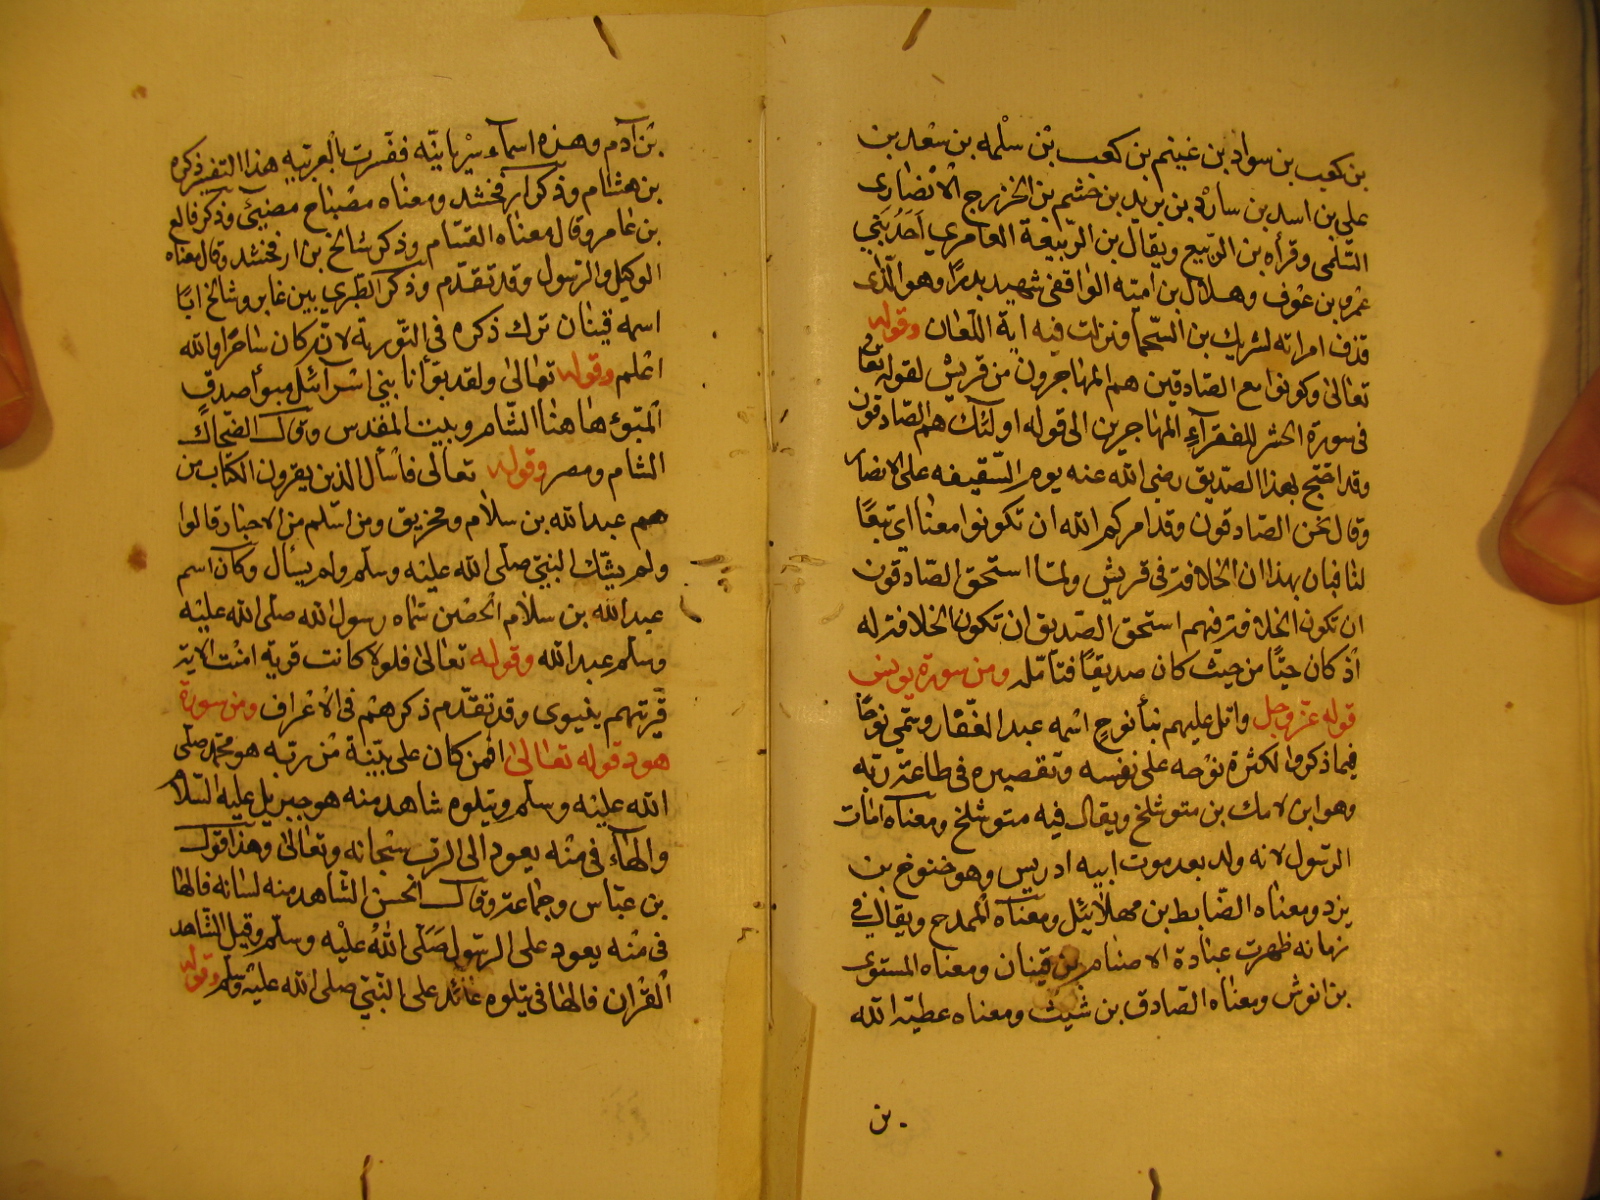 بن كعب بن سواد بن غينم بن كعب بن سلمه بن سعد بن
على بن اسد بن سارد بن يزيد بن خشم بن الخزرج الانصارى
السلمى وقرأه بن الربيع ويقال بن الربيعة العامري احد بني
عمرو بن عوف وهلال بن امية الواقفى شهيد بدرًا وهو الذى
قذف امراته لشريك بن السحما ونزلت فيه اية اللعان وقوله
تعالى وكونوا مع الصادقين هم المهاجرون من قريش لقوله تعالى
فى سورة الحشر للفقرآء المهاجرين الى قوله اولئك هم الصادقون
وقد احتج بهذا الصديق رضى الله عنه يوم السقيفه على الانصار
وقال نحن الصادقون وقد امركم الله ان تكونوا معنا اى تبعًا
لنا فبان بهذا ان الخلافة فى قريش ولما استحق الصادقون
ان تكون الخلافة فيهم استحق الصديق ان تكون الخلافة له
اذ كان حيًّا من حيث كان صديقًا فتأمله ومن سورة يونس
قوله عز وجل واتل عليهم نبأ نوح اسمه عبد الغفار وسمى نوحًا
فيما ذكروا لكثرة نوحه على نفسه وتقصيره فى طاعة ربه
وهو ابن لامك بن متوشلخ ويقال فيه متوشلخ ومعناه امات
الرسول لانه ولد بعد موت ابيه ادريس وهو خنوخ بن
يزد ومعناه الضابط بن مهلائيل ومعناه الممدح ويقال فى
زمانه ظهرت عبادة الاصنام بن قينان ومعناه المستوى
بن انوش ومعناه الصادق بن شيث ومعناه عطية الله
بن
بن آدم وهذه اسمآء سريانيه ففسرت بالعربيه هذا التفسير ذكره
بن هشام وذكر ارفخشد ومعناه مصباح مضيئ وذكر فالع
بن عامر وقال معناه القسام وذكر شالخ بن ارفخشد وقال معناه
الوكيل والرسول وقد تقدم وذكر الطبري بين غابر وشالخ ابًا
اسمه قينان ترك ذكره فى التورية لانه كان ساحرًا والله
اعلم وقوله تعالى ولقد بوأنا بني اسرآئيل مبوأ صدق
المتبوؤ هاهنا الشام وبيت المقدس وقال الضحاك
الشام ومصر وقوله تعالى فاسأل الذين يقرون الكتاب من
هم عبد الله بن سلام ومخزيق ومن اسلم من الاحبار قالوا
ولم يشك النبي صلى الله عليه وسلم ولم يسأل وكان اسم
عبد الله بن سلام الحصين سماه رسول الله صلى الله عليه
وسلم عبد الله وقوله تعالى فلولا كانت قرية امنت الاية
قريتهم ينيوى وقد تقدم ذكرهم فى الاعراف ومن سورة
هود قوله تعالى افمن كان على بينة من ربه هو محمد صلى
الله عليه وسلم ويتلوه شاهد منه هو جبريل عليه السلام
والهاء فى منه يعود الى الرب سبحانه وتعالى وهذا قول
بن عباس وجماعة وقال الحسن الشاهد منه لسانه فالها
فى منه يعود على الرسول صلى الله عليه وسلم وقيل الشاهد
القران فالها فى يتلوه عائد على النبي صلى الله عليه وسلم وقوله